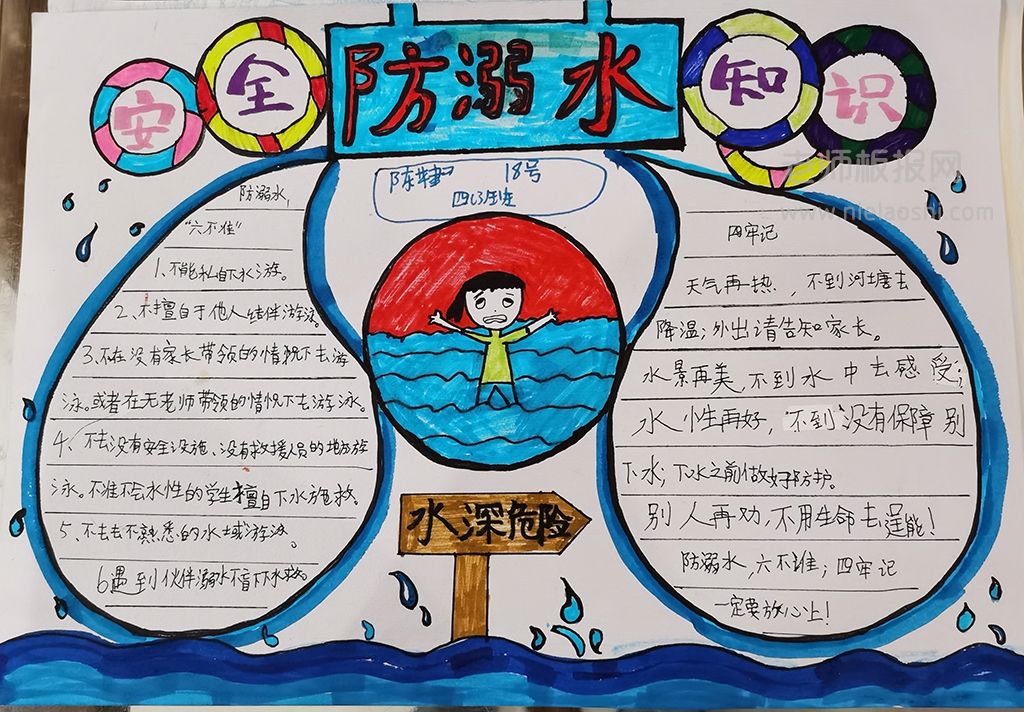 安全
防溺水
知识
18号
防溺水
"六不准"
1、不能私自下水游。
2、不擅自于他人结伴游泳。
3、不在没有家长带领的情况下去游
泳。或者在无老师带领的情况下去游泳。
4、不去没有安全设施、没有救援人员的地方游
泳。不准不会水性的学生擅自下水施救。
5、不去去不熟悉的水域游泳。
6遇到伙伴溺水不盲下水救。
水深危险
四牢记
天气再热，不到河塘去
降温；外出请告知家长。
水景再美，不到水中去感受；
水性再好，不到没有保障别
下水；下水之前做好防护。
别人再劝，不用生命去逞能！
防溺水，六不准；四牢记
一定要放心上！
老师板报网